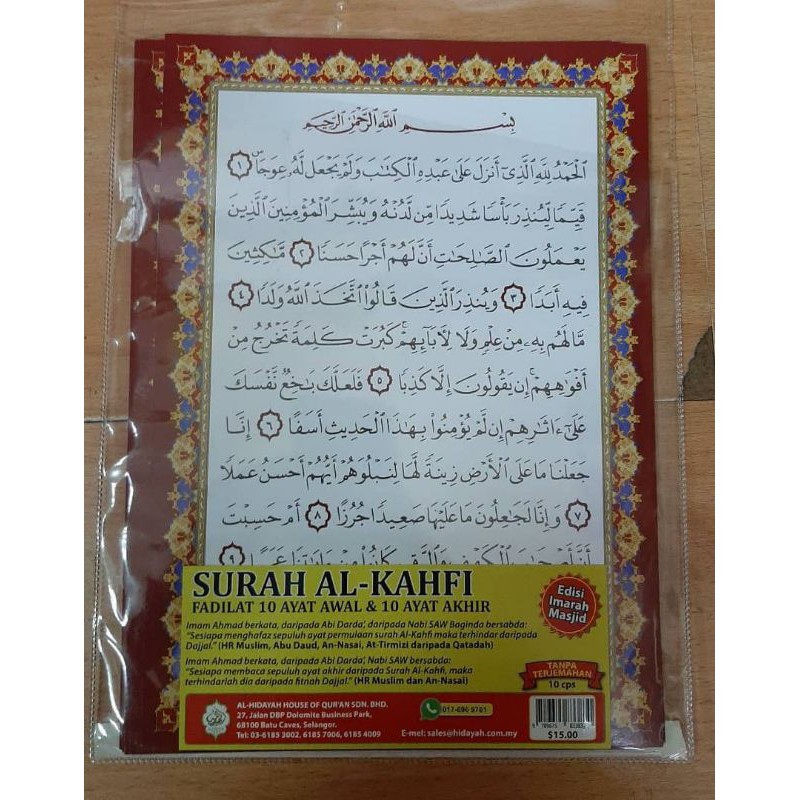 بِسْمِ اللَّهِ الرَّحْمَٰنِ الرَّحِيمِ
الْحَمْدُ لِلَّهِ الَّذِىٓ أَنزَلَ عَلَىٰ عَبْدِهِ الْكِتَٰبَ وَلَمْ يَجْعَل لَّهُۥ عِوَجَاۜ ١
قَيِّمًا لِّيُنذِرَ بَأْسًا شَدِيدًا مِّن لَّدُنْهُ وَيُبَشِّرَ الْمُؤْمِنِينَ الَّذِينَ
يَعْمَلُونَ الصَّٰلِحَٰتِ أَنَّ لَهُمْ أَجْرًا حَسَنًا ٢ مَّٰكِثِينَ
فِيهِ أَبَدًا ٣ وَيُنذِرَ الَّذِينَ قَالُوا اتَّخَذَ اللَّهُ وَلَدًا ٤
مَّا لَهُم بِهِۦ مِنْ عِلْمٍ وَلَا لِءَابَآئِهِمْ ۚ كَبُرَتْ كَلِمَةً تَخْرُجُ مِنْ
أَفْوَٰهِهِمْ ۚ إِن يَقُولُونَ إِلَّا كَذِبًا ٥ فَلَعَلَّكَ بَٰخِعٌ نَّفْسَكَ
عَلَىٰٓ ءَاثَٰرِهِمْ إِن لَّمْ يُؤْمِنُوا بِهَٰذَا الْحَدِيثِ أَسَفًا ٦ إِنَّا
جَعَلْنَا مَا عَلَى الْأَرْضِ زِينَةً لَّهَا لِنَبْلُوَهُمْ أَيُّهُمْ أَحْسَنُ عَمَلًا
٧ وَإِنَّا لَجَٰعِلُونَ مَا عَلَيْهَا صَعِيدًا جُرُزًا ٨ أَمْ حَسِبْتَ
أَنَّ أَصْحَٰبَ الْكَهْفِ وَالرَّقِيمِ كَانُوا مِنْ ءَايَٰتِنَا عَجَبًا ٩
SURAH AL-KAHFI
FADILAT 10 AYAT AWAL & 10 AYAT AKHIR
Imam Ahmad berkata, daripada Abi Darda', daripada Nabi SAW Baginda bersabda:
"Sesiapa menghafaz sepuluh ayat permulaan surah Al-Kahfi maka terhindar daripada
Dajjal." (HR Muslim, Abu Daud, An-Nasai, At-Tirmizi daripada Qatadah)
Imam Ahmad berkata, daripada Abi Darda', Nabi SAW bersabda:
"Sesiapa membaca sepuluh ayat akhir daripada Surah Al-Kahfi, maka
terhindarlah dia daripada fitnah Dajjal." (HR Muslim dan An-Nasai)
Edisi
Imarah
Masjid
TANPA
TERJEMAHAN
10 cps
AL-HIDAYAH HOUSE OF QUR'AN SDN. BHD.
27, Jalan DBP Dolomite Business Park,
68100 Batu Caves, Selangor.
Tel: 03-6185 2002, 6185 7006, 6185 4009
017-696 9761
E-mel: sales@hidayah.com.my
$15.00